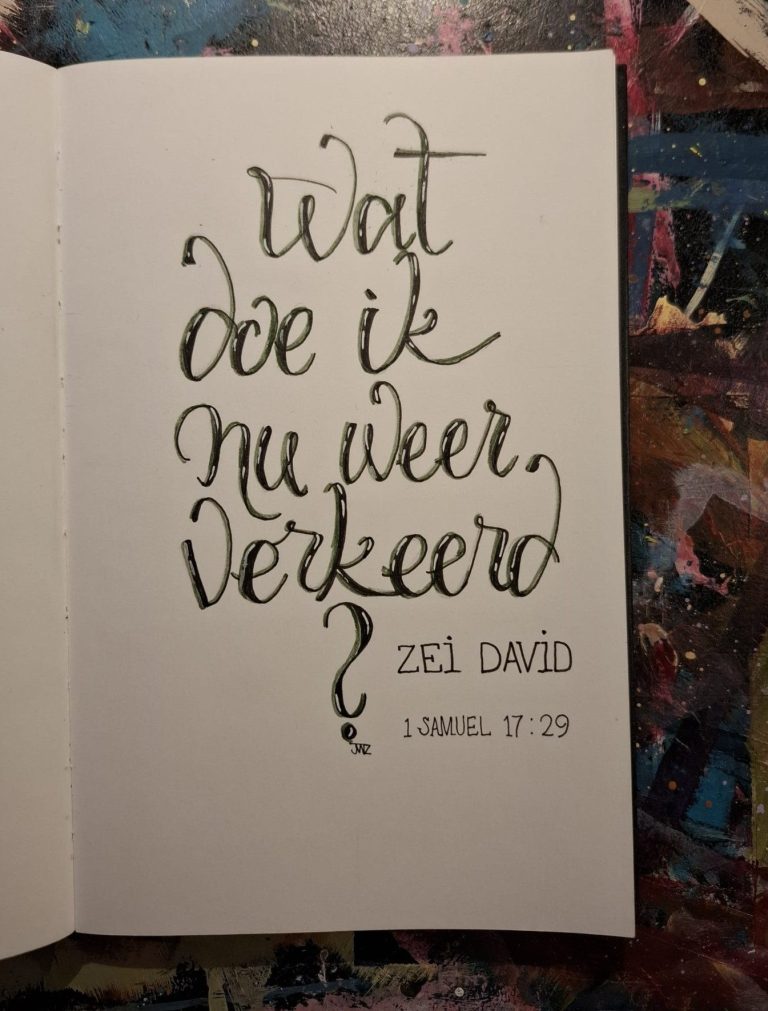 Wat
doe ik
nu weer
verkeerd
?
ZEI DAVID
1 SAMUEL 17:29
JWZ